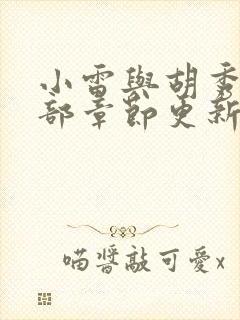 小雷與胡秀
部章節更新
喵醬敲可愛x